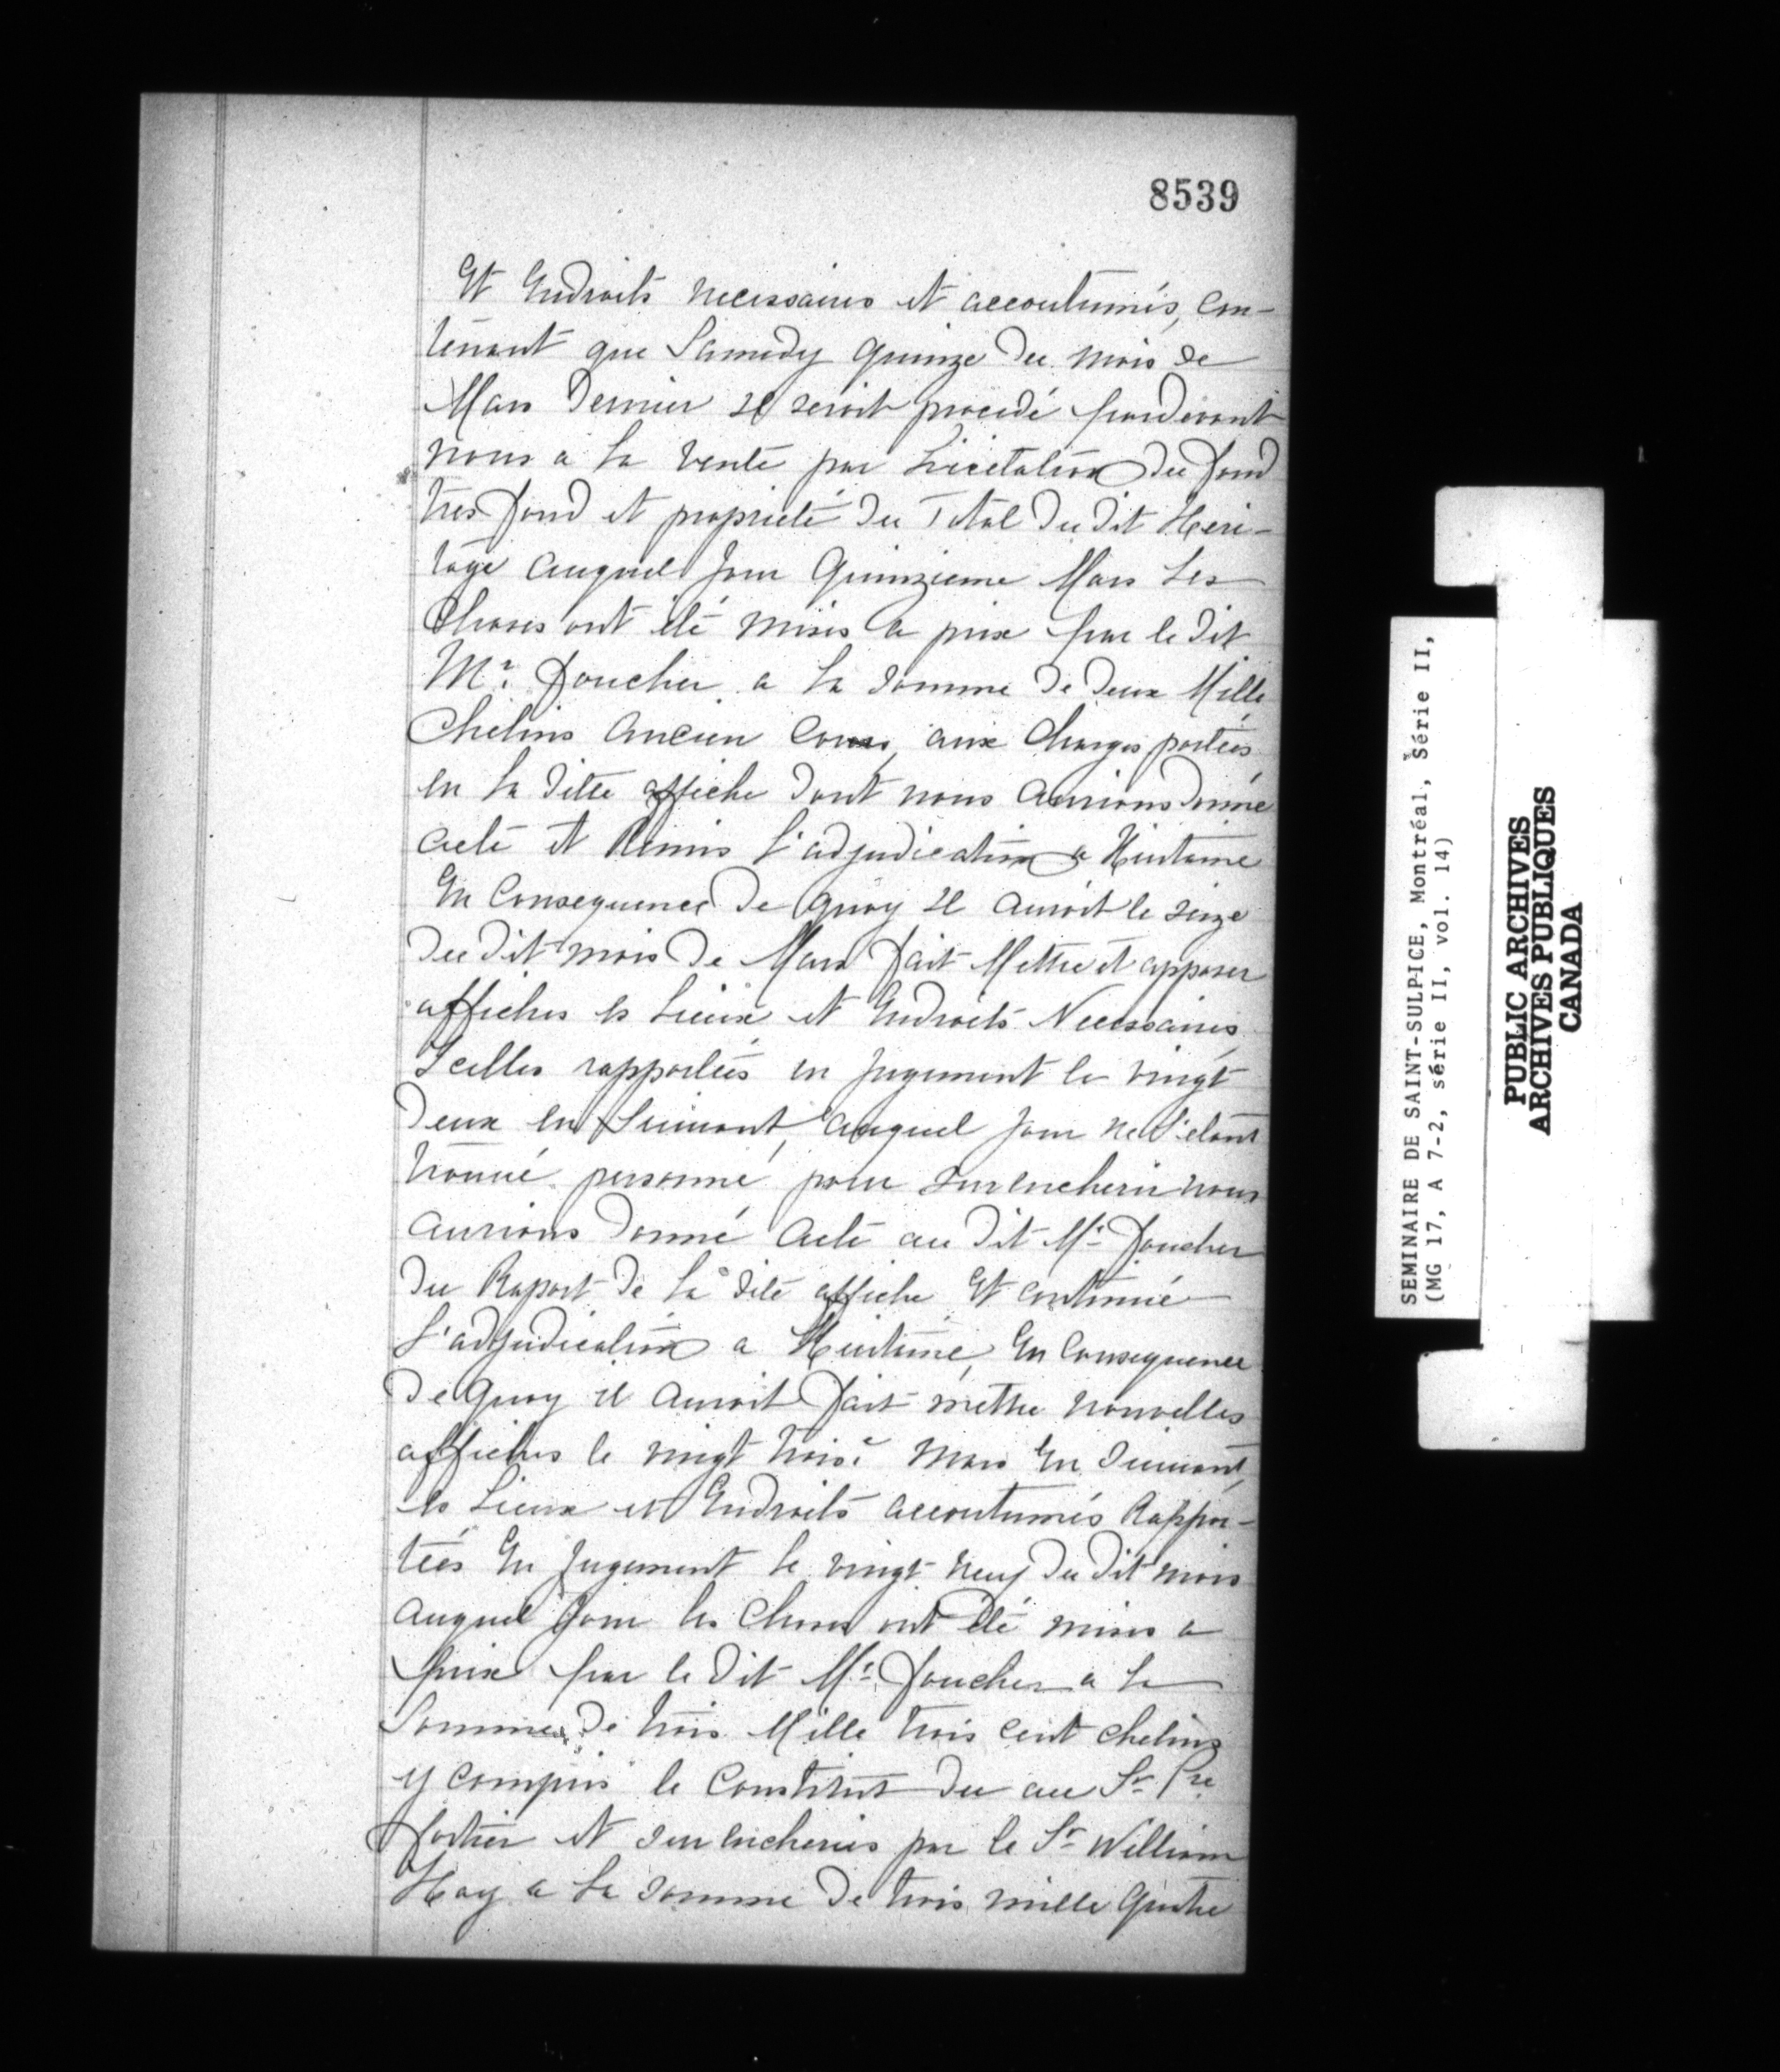 8539
Et Endroits necessaires et accoutumés, con-
tenant que Samedy Quinze du mois de
Mars Dernier Il seroit procedé pardevant
nous a La Vente par Licitation du fond
tres fond et propriété du Total du dit Heri-
tage auquel jour Quinzieme Mars Les
Choses ont été mises a prix par le dit
Mr. foucher a La somme de deux Mille
Chelins ancien Cours, aux Charges portées
en La ditte affiche dont nous aurions donné
acte et Remis L'adjudication a Huitaine
En Consequence de Quoy Il auroit le seize
du dit mois de Mars fait Mettre et apposer
affiches es Lieux et Endroits Necessaires
Icelles rapportées en jugement le vingt
deux en suivant, auquel jour ne s'etant
trouvé personne pour surencherir nous
aurions donné acte au dit Mr. foucher
du Raport de La dite affiche Et continué
L'adjudication a Huitaine, En Consequence
de Quoy il auroit fait mettre nouvelles
affiches le vingt trois.e Mars En suivant,
es Lieux et Endroits accoutumés Rappor-
tées En Jugement le vingt neuf du dit mois
auquel Jour les Choses ont été mises a
prix par le dit Mr. foucher a La
Somme de trois Mille trois cent chelins
y compris le Constitut du au Sr. Pre
fortier et sur encheries par le Sr. William
Hay a La somme de trois mille Quatre
SEMINAIRE DE SAINT-SULPICE, Montréal, Série II,
(MG 17, A 7-2, série II, vol. 14)
PUBLIC ARCHIVES
ARCHIVES PUBLIQUES
CANADA